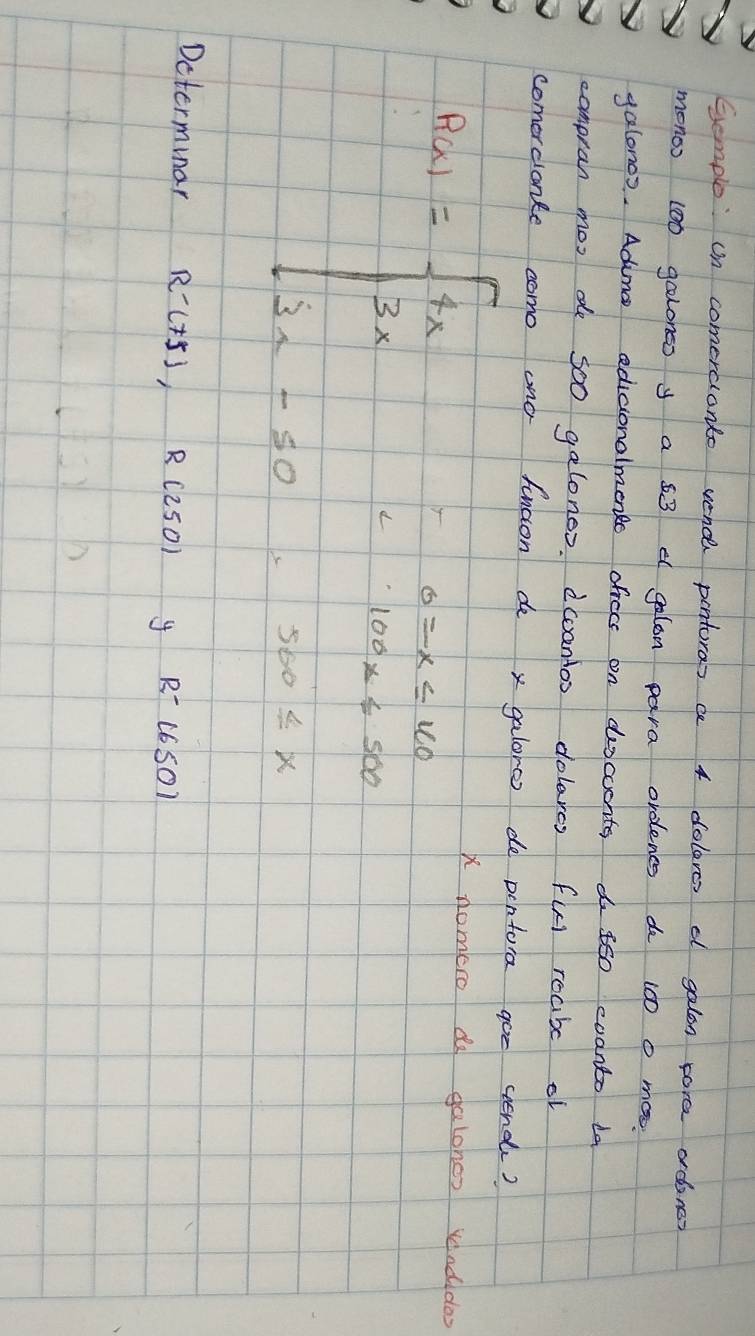 Ejemplo: un comerciante vende pinturas a 4 dolares el galon para ordenes
menos 100 galones y a $3 el galon para ordenes de 100 o mas
galones. Aduna adicionalmente ofrece un descuento de $50 cuanto la
compran mas de 500 galones. ¿cuantos dolares f(x) recibe el
comerciante como una funcion de x galones de pintura que vende?
x nomero de galones vendidos
R(x) = 4x , 0 = x ≤ 100
3x , 100 x ≤ 500
3x - 50 , 500 ≤ x
Determinar R(75), R(250) y R(650)